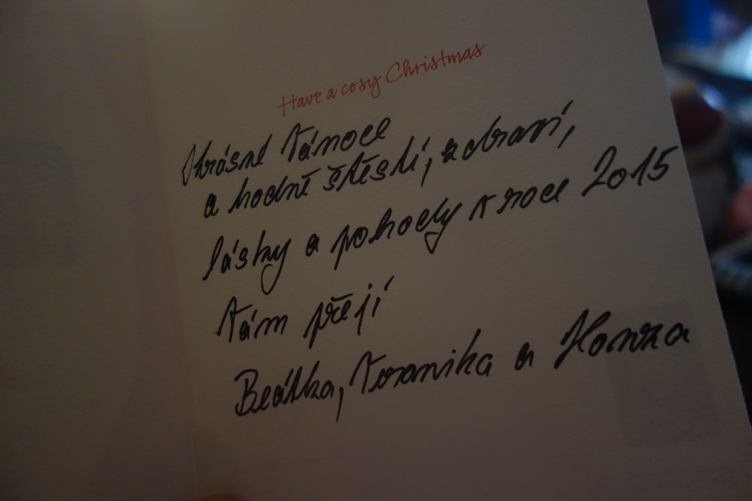 Have a cosy Christmas
Krásné Vánoce
a hodně štěstí, zdraví,
lásky a pohody v roce 2015
Vám přejí
Beátka, Veronika a Honza